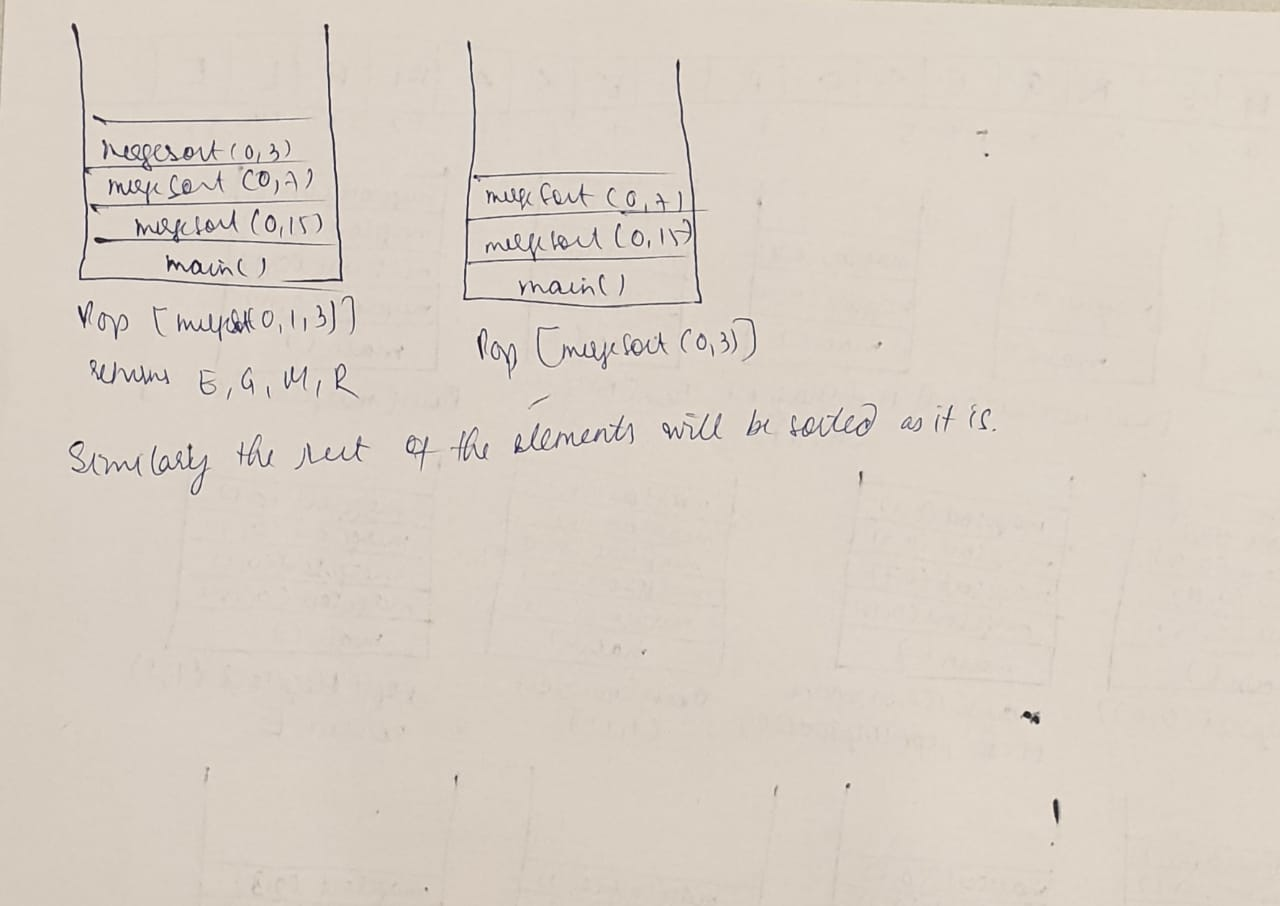 mergesort (0,3)
mergesort (0,7)
mergesort (0,15)
main()
Pop [merge(0,1,3)]
returns E, G, M, R
mergesort (0,7)
mergesort (0,15)
main()
Pop [mergesort (0,3)]
Similarly the rest of the elements will be sorted as it is.